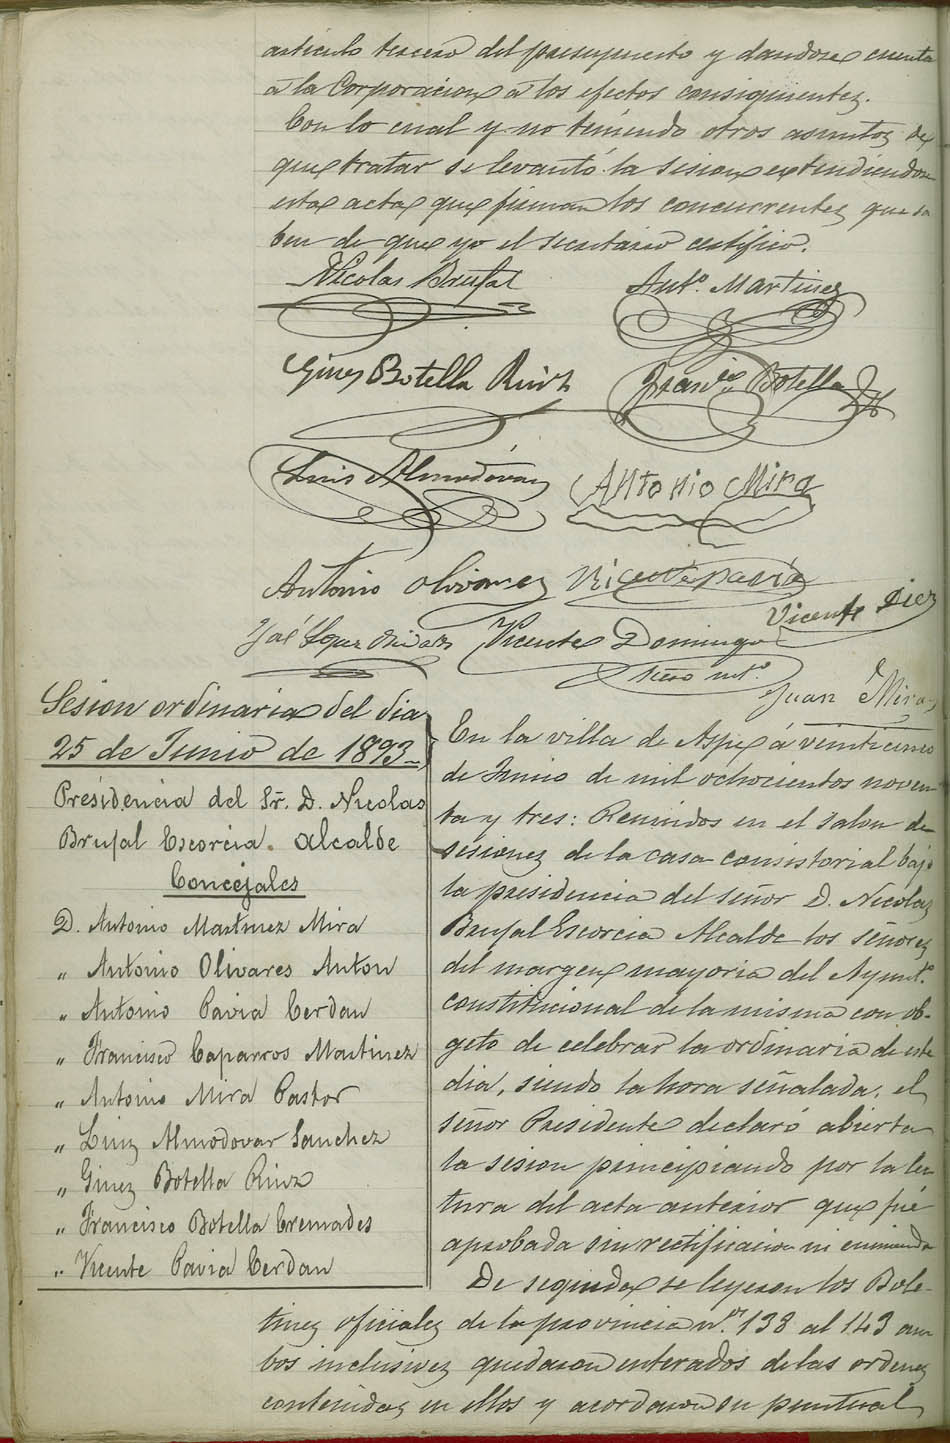 articulo tercero del presupuesto y dandose cuenta
a la Corporacion a los efectos consiguientes.
Con lo cual y no teniendo otros asuntos de
que tratar se levantó la sesion extendiendose
esta acta que firman los concurrentes que sa
ben de que yo el Secretario certifico.
Nicolas Brufal
Antº. Martinez
Gines Botella Ruiz
Francº Botella
Luis Almodóvar
Antonio Mira
Antonio Olivares
Vicente Pavia
Vicente Diez
José Lopez
Vicente Domingo
Juan Mira
Sesion ordinaria del dia
25 de Junio de 1893
Presidencia del Sr. D. Nicolas
Brufal Escorcia. Alcalde
Concejales
D. Antonio Martinez Mira
" Antonio Olivares Anton
" Antonio Pavia Cerdan
" Francisco Caparros Martinez
" Antonio Mira Pastor
" Luiz Almodovar Sanchez
" Ginez Botella Ruiz
" Francisco Botella Cremades
" Vicente Pavia Cerdan
En la villa de Aspe á veinticinco
de Junio de mil ochocientos noven
ta y tres: Reunidos en el salon de
sesionez de la casa consistorial bajo
la presidencia del señor D. Nicolas
Brufal Escorcia Alcalde los señorez
del margen mayoria del Aymtº.
constitucional de la misma con ob-
geto de celebrar la ordinaria de este
dia, siendo la hora señalada, el
señor Presidente declaró abierta
la sesion principiando por la lec
tura del acta anterior que fué
aprobada sin rectificacion ni enmienda
De seguida se leyeron los Bole-
tinez oficialez de la provincia n.os 138 al 143 am
bos inclusivez quedaron enterados de las ordenez
contenidaz en ellos y acordaron su puntual